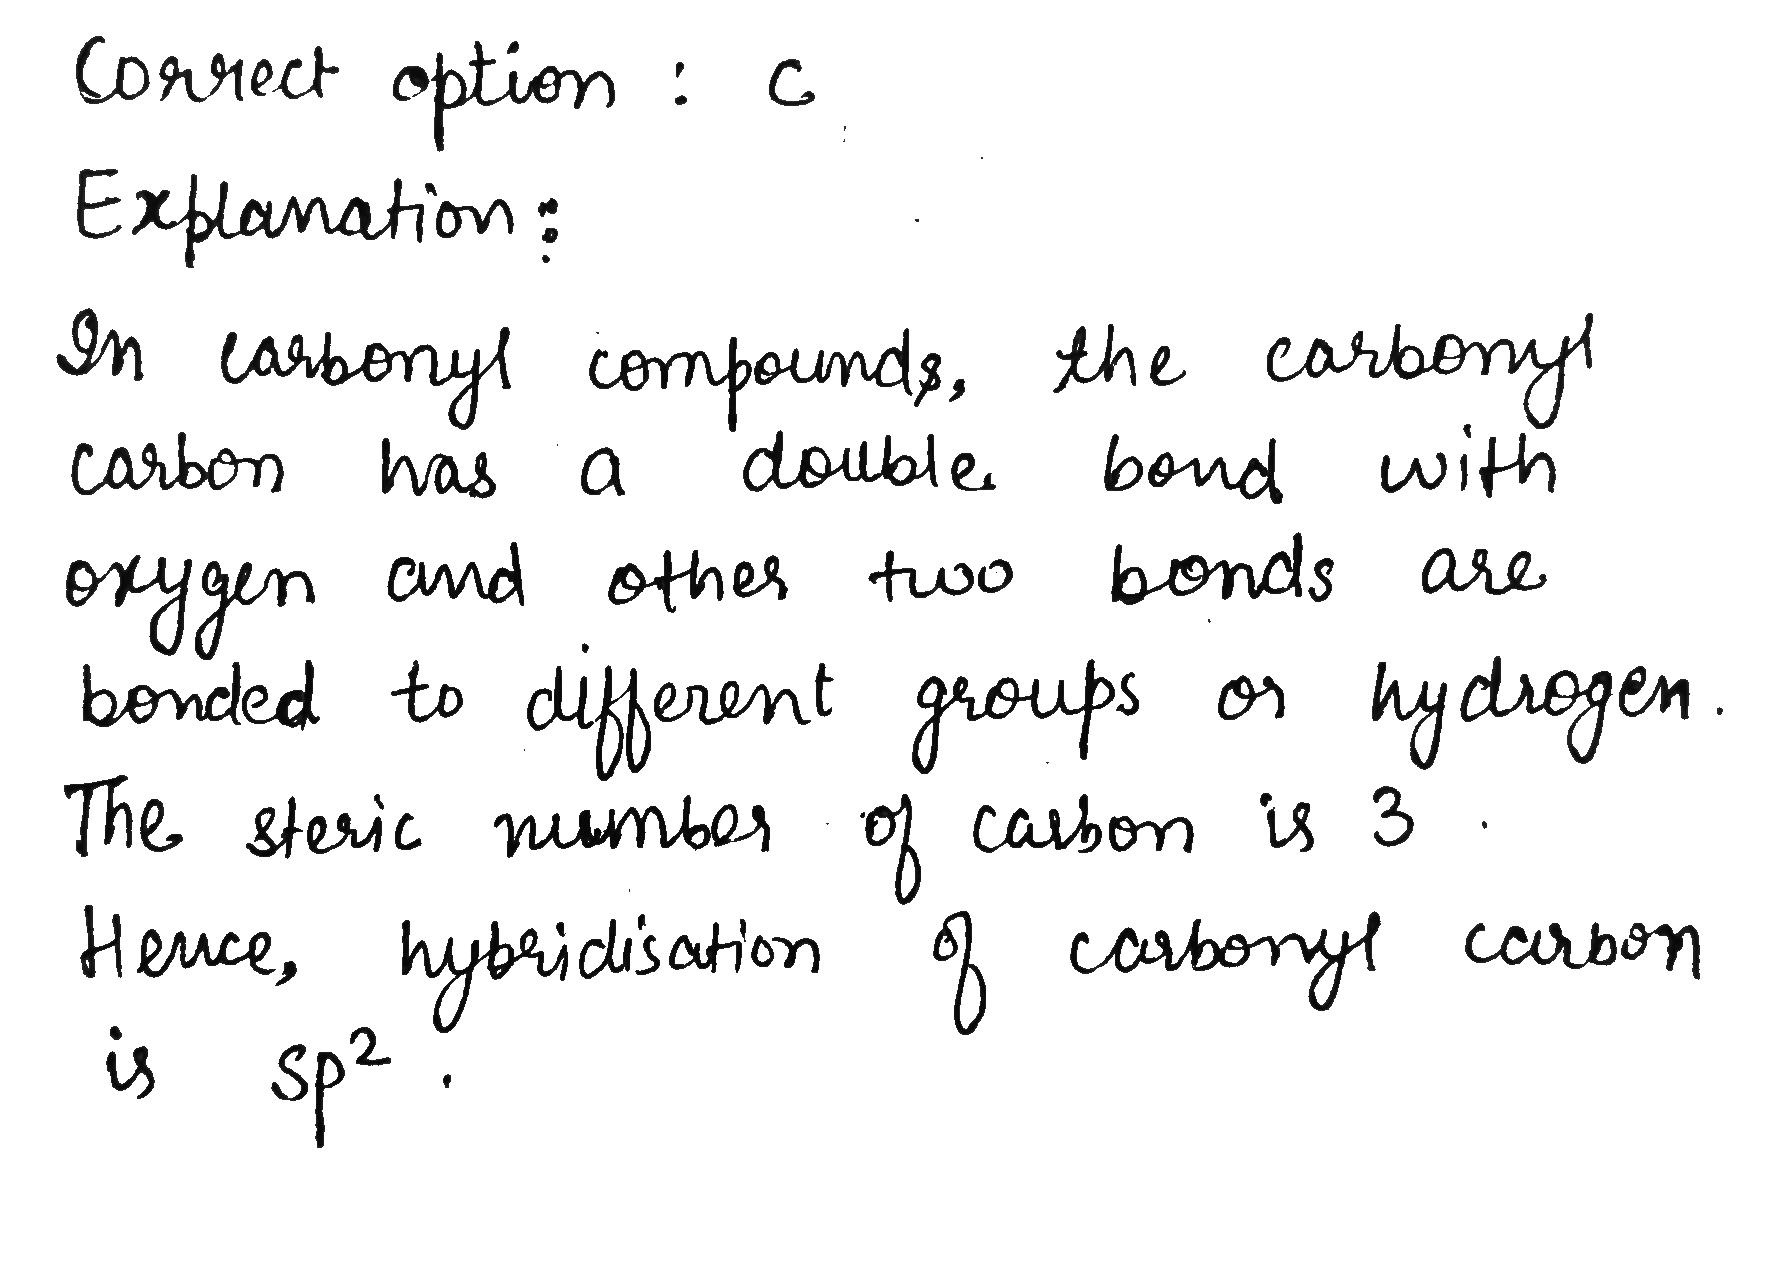 Correct option : C
Explanation :
In carbonyl compounds, the carbonyl
carbon has a double bond with
oxygen and other two bonds are
bonded to different groups or hydrogen.
The steric number of carbon is 3 .
Hence, hybridisation of carbonyl carbon
is sp² .